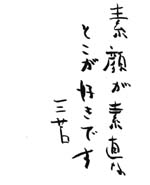 素顔が素直な
とこが好きです
三苫